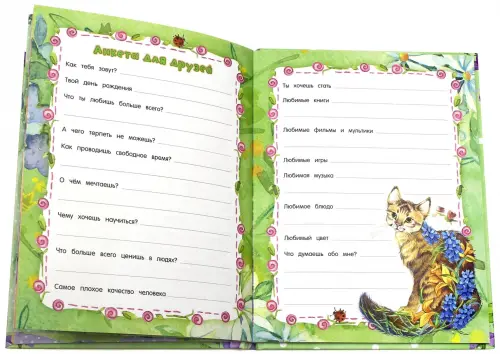 Анкета для друзей
Как тебя зовут?
Твой день рождения
Что ты любишь больше всего?
А чего терпеть не можешь?
Как проводишь свободное время?
О чём мечтаешь?
Чему хочешь научиться?
Что больше всего ценишь в людях?
Самое плохое качество человека
Ты хочешь стать
Любимые книги
Любимые фильмы и мультики
Любимые игры
Любимая музыка
Любимое блюдо
Любимый цвет
Что думаешь обо мне?